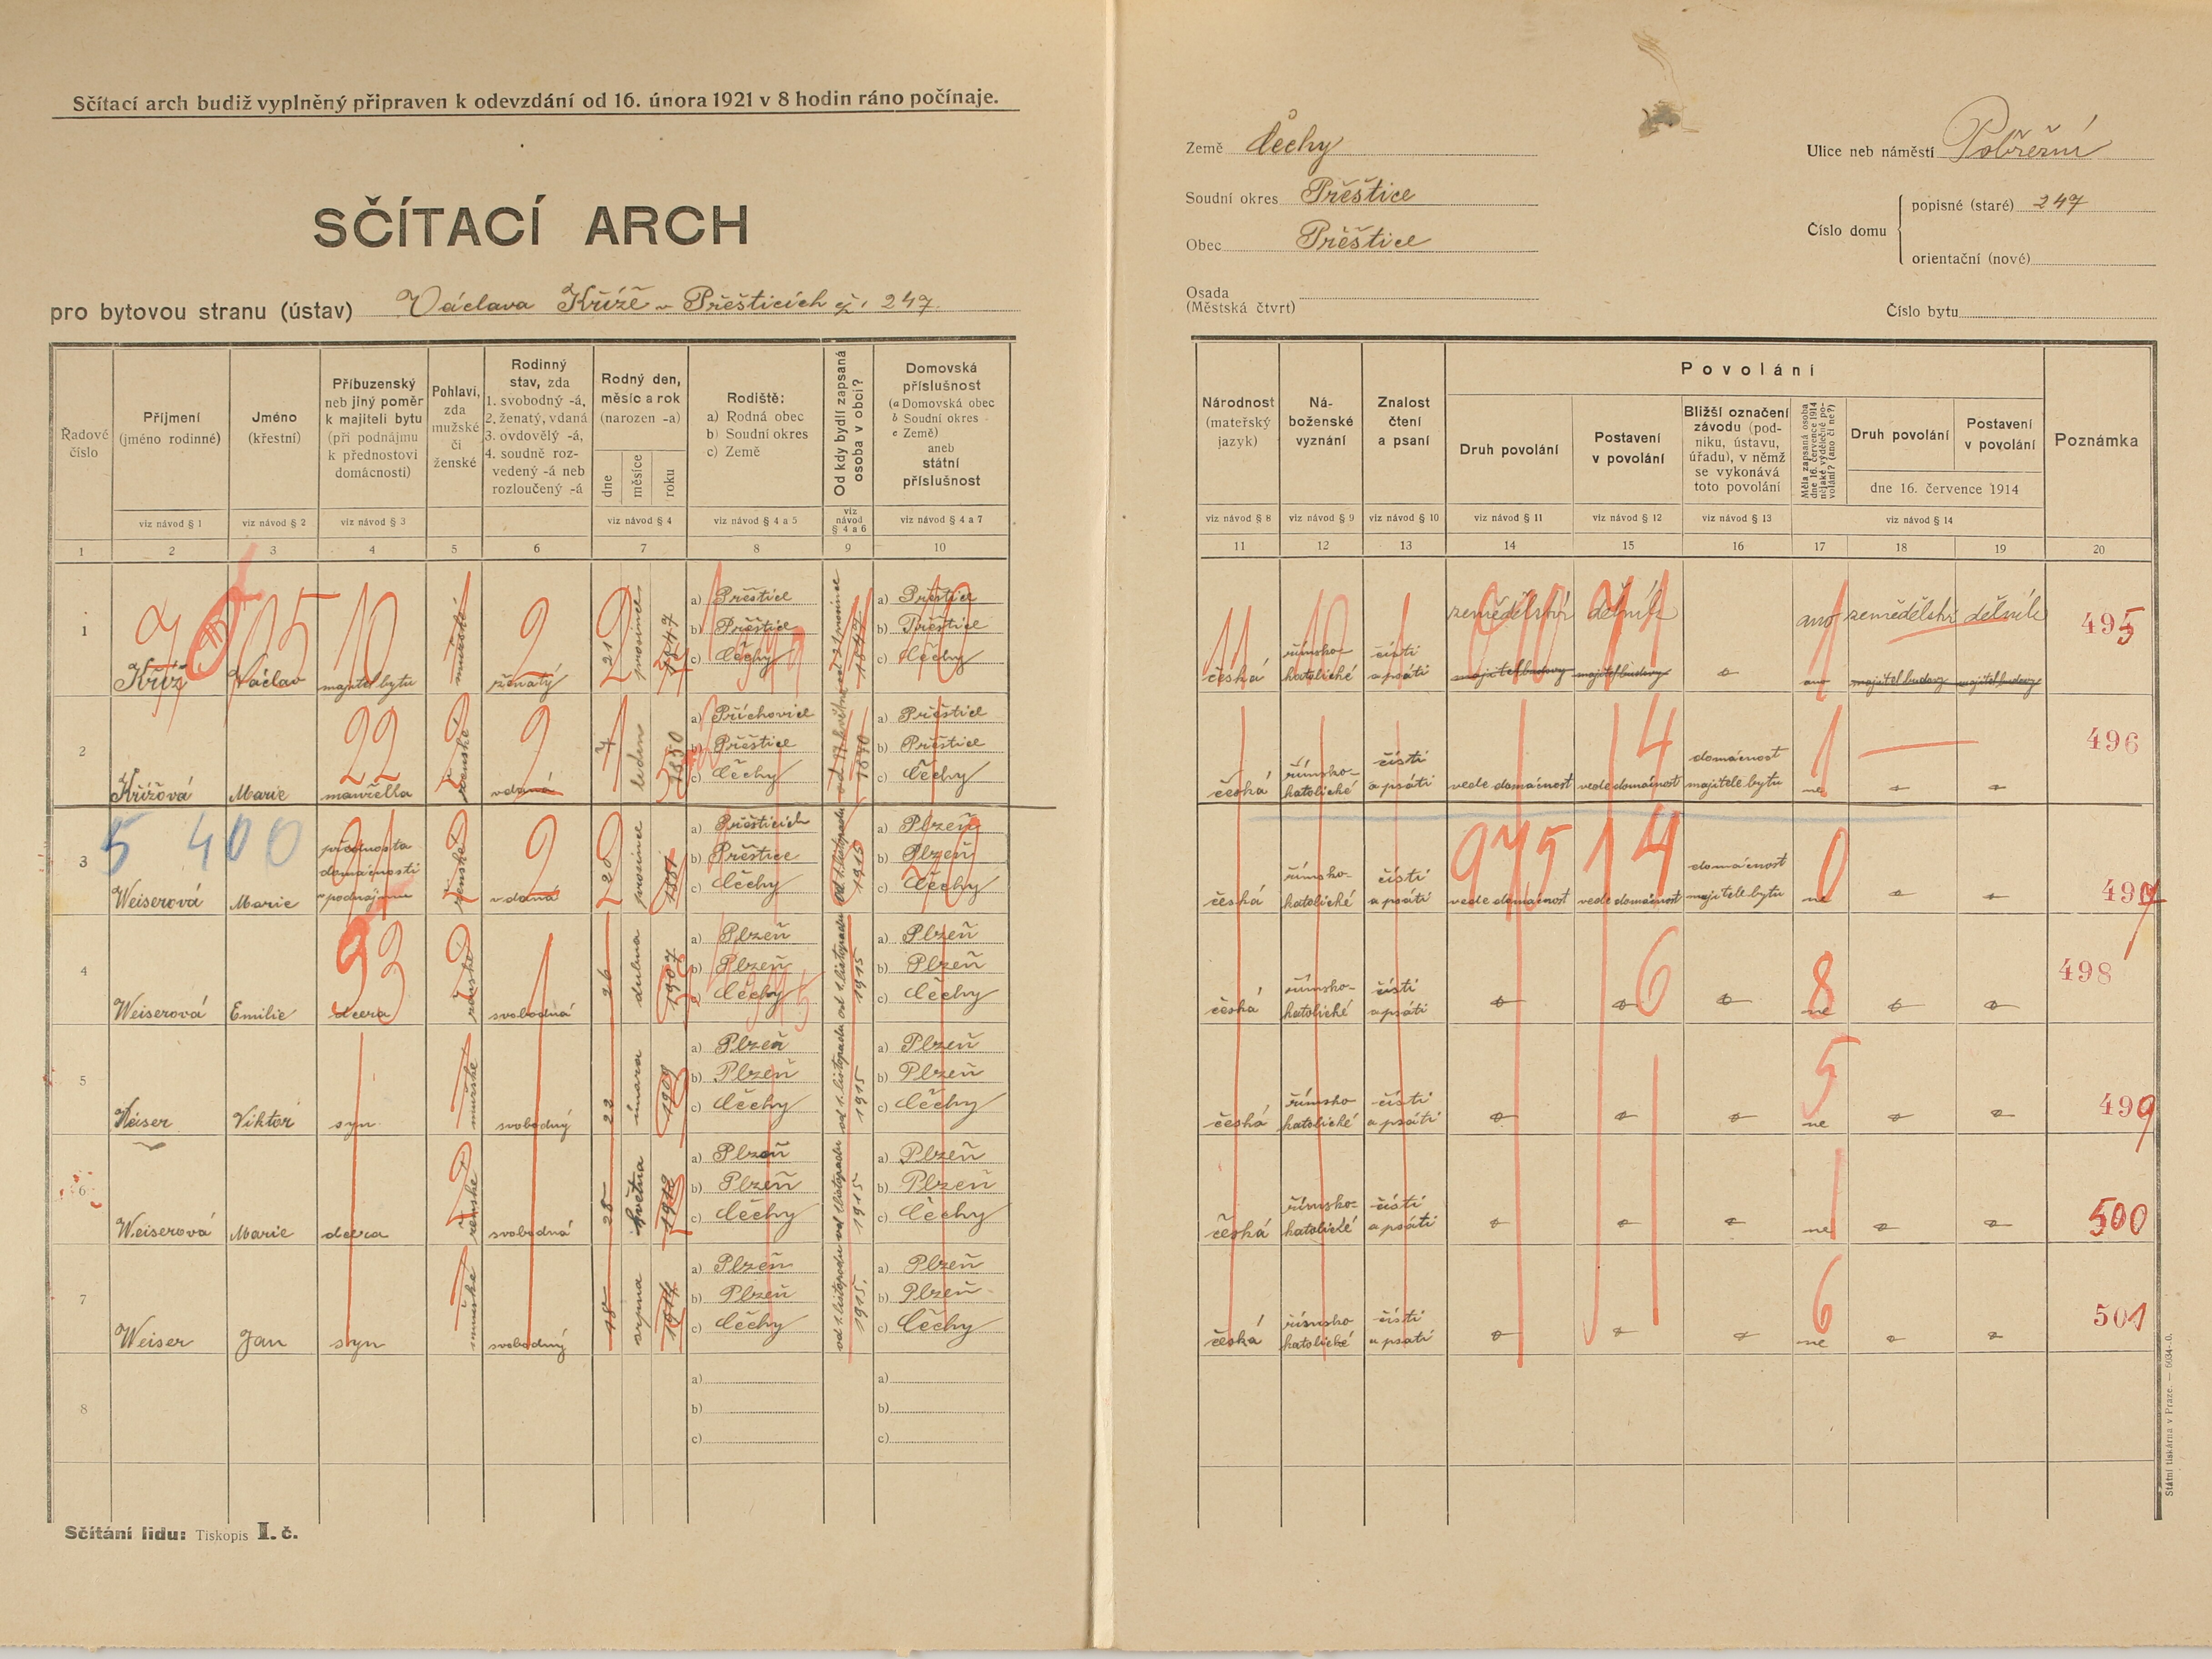 Sčítací arch budiž vyplněný připraven k odevzdání od 16. února 1921 v 8 hodin ráno počínaje.
SČÍTACÍ ARCH
pro bytovou stranu (ústav) Václava Kříže v Přešticích čp. 247.
Země Čechy
Soudní okres Přeštice
Obec Přeštice
Osada
(Městská čtvrť)
Ulice neb náměstí Pobřežní
Číslo domu
popisné (staré) 247
orientační (nové)
Číslo bytu
Řadové číslo
Příjmení (jméno rodinné)
Jméno (křestní)
Příbuzenský neb jiný poměr k majiteli bytu (při podnájmu k přednostovi domácnosti)
Pohlaví, zda mužské či ženské
Rodinný stav, zda 1. svobodný -á, 2. ženatý, vdaná 3. ovdovělý -á, 4. soudně rozvedený -á neb rozloučený -á
Rodný den, měsíc a rok (narozen -a)
dne měsíce roku
Rodiště: a) Rodná obec b) Soudní okres c) Země
Od kdy bydlí zapsaná osoba v obci?
Domovská příslušnost (a Domovská obec b Soudní okres c Země) aneb státní příslušnost
viz návod § 1 viz návod § 2 viz návod § 3 viz návod § 4 viz návod § 4 a 5 viz návod § 4 a 6 viz návod § 4 a 7
1 2 3 4 5 6 7 8 9 10
Národnost (mateřský jazyk)
Náboženské vyznání
Znalost čtení a psaní
Povolání
Druh povolání
Postavení v povolání
Bližší označení závodu (podniku, ústavu, úřadu), v němž se vykonává toto povolání
Měla zapsaná osoba dne 16. července 1914 nějaké výdělečné povolání? (ano či ne?)
Druh povolání
Postavení v povolání
dne 16. července 1914
Poznámka
viz návod § 8 viz návod § 9 viz návod § 10 viz návod § 11 viz návod § 12 viz návod § 13 viz návod § 14
11 12 13 14 15 16 17 18 19 20
1 Kříž Václav majitel bytu mužské ženatý 21 prosince 1847 a) Přeštice b) Přeštice c) Čechy od 21 prosince 1847 a) Přeštice b) Přeštice c) Čechy
česká římsko-katolické čísti a psáti zemědělství dělník ano zemědělství dělník 495
majitel budovy majitel budovy ano majitel budovy majitel budovy
2 Křížová Marie manželka ženské vdaná 7 ledna 1850 a) Příchovice b) Přeštice c) Čechy 1870 a) Přeštice b) Přeštice c) Čechy
česká římsko-katolické čísti a psáti vede domácnost vede domácnost domácnost majitele bytu ne 496
5 400
3 Weiserová Marie přednosta domácnosti v podnájmu ženské vdaná 20 prosince 1881 a) Přešticích b) Přeštice c) Čechy od 1. listopadu 1915 a) Plzeň b) Plzeň c) Čechy
česká římsko-katolické čísti a psáti vede domácnost vede domácnost domácnost majitele bytu ne 497
4 Weiserová Emilie dcera ženské svobodná 26 dubna 1907 a) Plzeň b) Plzeň c) Čechy od 1. listopadu 1915 a) Plzeň b) Plzeň c) Čechy
česká římsko-katolické čísti a psáti ne 498
5 Weiser Viktor syn mužské svobodný 22 února 1909 a) Plzeň b) Plzeň c) Čechy od 1. listopadu 1915 a) Plzeň b) Plzeň c) Čechy
česká římsko katolické čísti a psáti ne 499
6 Weiserová Marie dcera ženské svobodná 25 května 1912 a) Plzeň b) Plzeň c) Čechy od 1 listopadu 1915 a) Plzeň b) Plzeň c) Čechy
česká římsko-katolické čísti a psáti ne 500
7 Weiser Jan syn mužské svobodný 15 srpna 1914 a) Plzeň b) Plzeň c) Čechy od 1. listopadu 1915. a) Plzeň b) Plzeň c) Čechy
česká římsko katolické čísti a psati ne 501
8 a) b) c) a) b) c)
Sčítání lidu: Tiskopis I. č.
Státní tiskárna v Praze. — 6034-0.